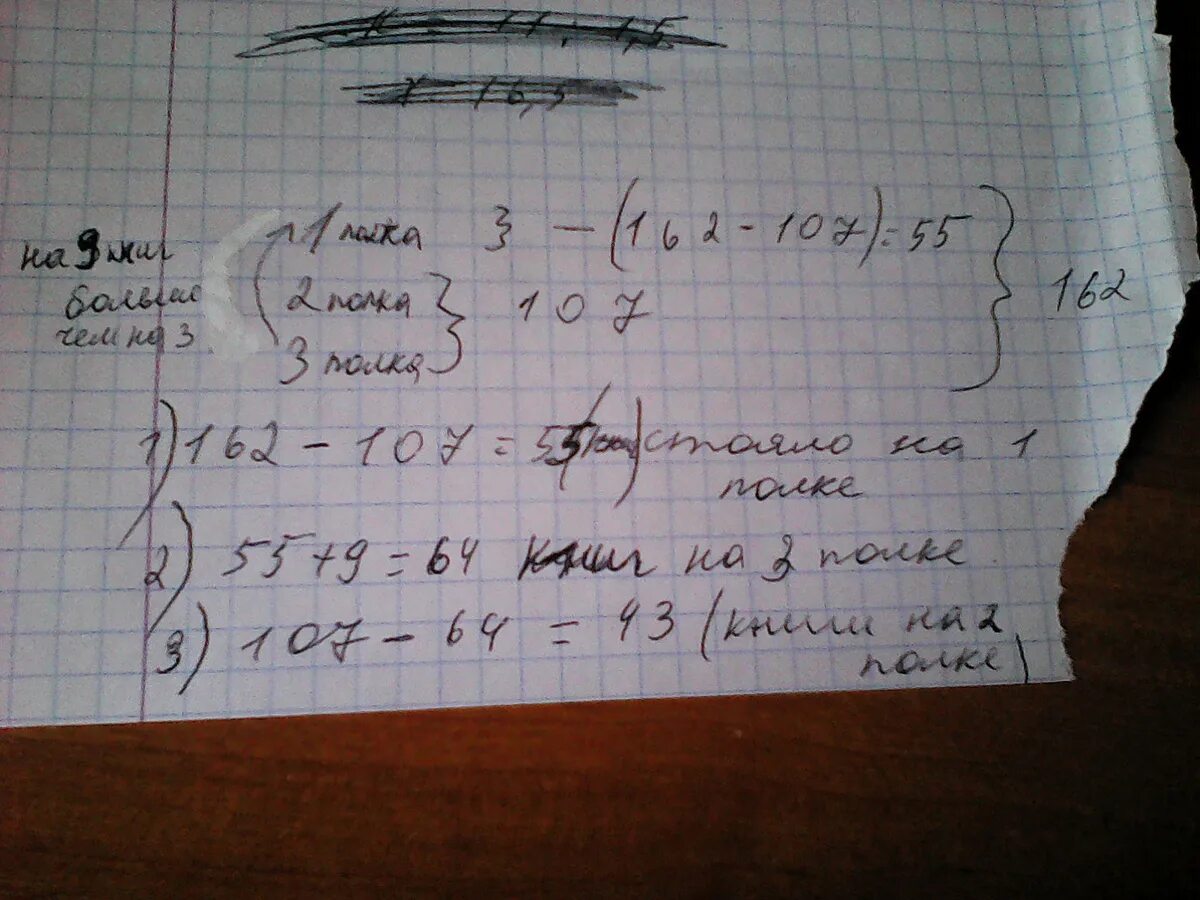 на 9 книг
больше
чем на 3
1 полка 3 - (162 - 107) = 55
2 полка
107
3 полка
162
1) 162 - 107 = 55 стояло на 1
полке
2) 55 + 9 = 64 книг на 3 полке
3) 107 - 64 = 43 (книги на 2
полке)